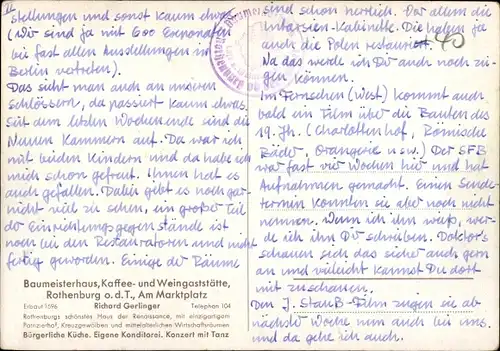 stellungen und sonst kaum etwas
(wir sind ja mit 600 Exponaten
bei fast allen Ausstellungen in
Berlin vertreten).
Das sieht man auch an unseren
Schlössern, da passiert kaum etwas.
Seit dem letzten Wochenende sind die
Neuen Kammern auf. Da war ich
mit beiden Kindern und da habe ich
mich schon gefreut. Ihnen hat es
auch gefallen. Dabei gibt es noch gar
nicht viel zu sehen, ein großer Teil
der Einrichtungsgegenstände ist
noch bei den Restauratoren und nicht
fertig geworden. Einige der Räume
Baumeisterhaus, Kaffee- und Weingaststätte,
Rothenburg o. d. T., Am Marktplatz
Richard Gerlinger
Erbaut 1596 Telephon 104
Rothenburgs schönstes Haus der Renaissance, mit einzigartigem
Patrizierhof, Kreuzgewölben und mittelalterlichen Wirtschaftsräumen
Bürgerliche Küche. Eigene Konditorei. Konzert mit Tanz
sind schon herrlich. Vor allem die
Intarsien-Kabinette. Die haben ja
auch die Polen restauriert.
Na das werde ich Dir auch noch zei-
gen können.
Im Fernsehen (West) kommt auch
bald ein Film über die Bauten des
19. Jh. (Charlottenhof, Römische
Bäder, Orangerie usw.) Der SFB
war fast vier Wochen hier und hat
Aufnahmen gemacht. Einen Sende-
termin konnten sie aber noch nicht
nennen. Wenn ich ihn weiß, wer-
de ich ihn Dir schreiben. Doktor's
schauen sich das sicher auch gern
an und vielleicht kannst Du dort
mit zuschauen.
Den J. Strauß-Film zeigen sie ab
nächste Woche nun auch bei uns.
und da gehe ich